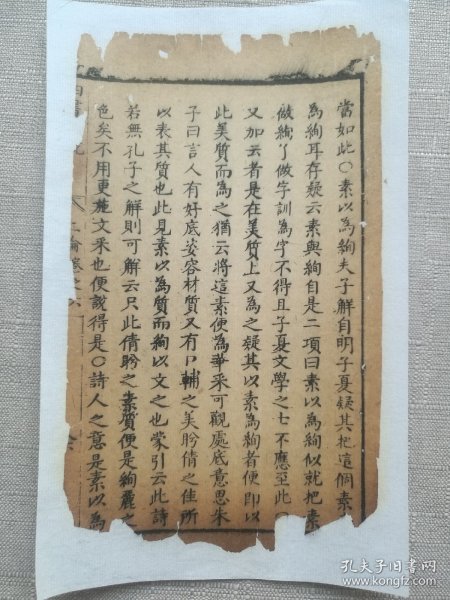 當如此〇素以為絢夫子解自明子夏疑其把這個素
為絢耳存疑云素與絢自是二項曰素以為絢似就把素
做絢了做字訓為字不得且子夏文學之士不應至此〇
又加云者是在美質上又為之疑其以素為絢者便即以
此美質而為之猶云將這素便為華采可觀處底意思朱
子曰言人有好底姿容材質又有口輔之美盼倩之佳所
以表其質也此見素以為質而絢以文之也蒙引云此詩
若無孔子之解則可解云只此倩盼之素質便是絢麗之
色矣不用更施文采也便說得是〇詩人之意是素以為
二論卷之
孔夫子旧书网
www.kongfz.com